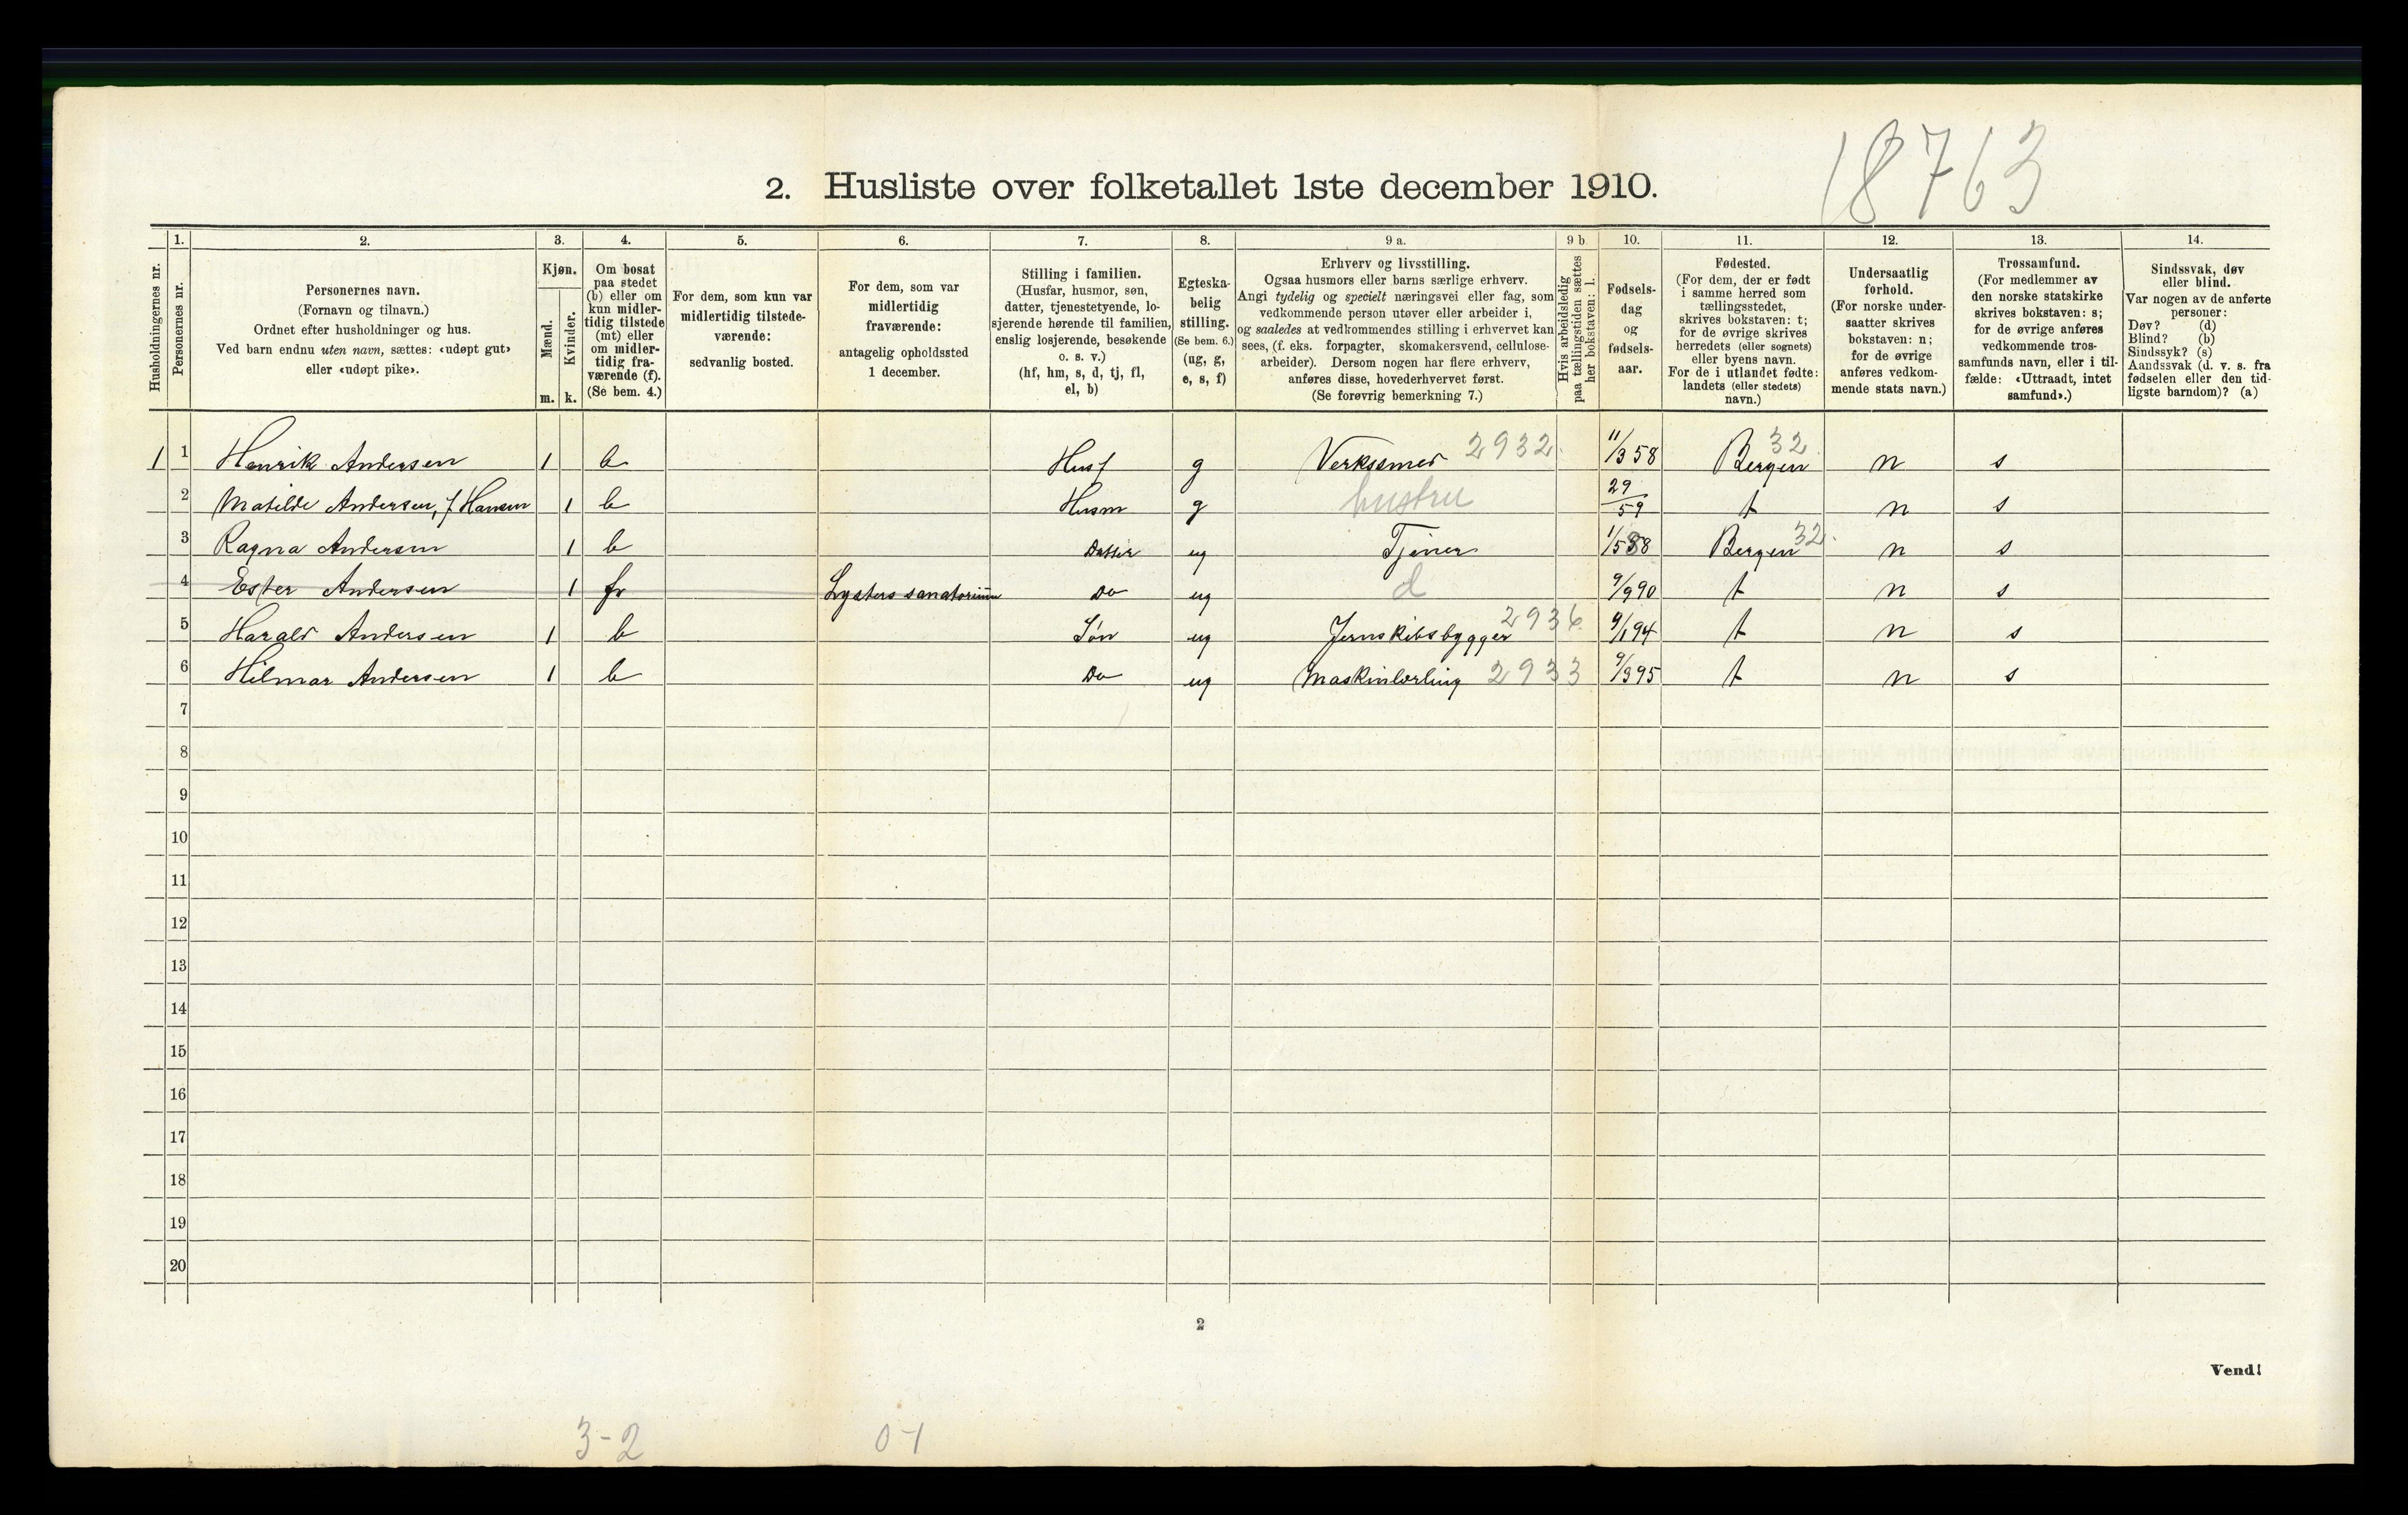 18763
2. Husliste over folketallet 1ste december 1910.
Husholdningernes nr.
1.
Personernes nr.
2.
Personernes navn.
(Fornavn og tilnavn.)
Ordnet efter husholdninger og hus.
Ved barn endnu uten navn, sættes: «udøpt gut»
eller «udøpt pike».
3.
Kjøn.
Mænd.
Kvinder.
m. k.
4.
Om bosat
paa stedet
(b) eller om
kun midler-
tidig tilstede
(mt) eller
om midler-
tidig fra-
værende (f).
(Se bem. 4.)
5.
For dem, som kun var
midlertidig tilstede-
værende:
sedvanlig bosted.
6.
For dem, som var
midlertidig
fraværende:
antagelig opholdssted
1 december.
7.
Stilling i familien.
(Husfar, husmor, søn,
datter, tjenestetyende, lo-
sjerende hørende til familien,
enslig losjerende, besøkende
o. s. v.)
(hf, hm, s, d, tj, fl,
el, b)
8.
Egteska-
belig
stilling.
(Se bem. 6.)
(ug, g,
e, s, f)
9 a.
Erhverv og livsstilling.
Ogsaa husmors eller barns særlige erhverv.
Angi tydelig og specielt næringsvei eller fag, som
vedkommende person utøver eller arbeider i,
og saaledes at vedkommendes stilling i erhvervet kan
sees, (f. eks. forpagter, skomakersvend, cellulose-
arbeider). Dersom nogen har flere erhverv,
anføres disse, hovederhvervet først.
(Se forøvrig bemerkning 7.)
9 b
Hvis arbeidsledig
paa tællingstiden sættes
her bokstaven: l.
10.
Fødsels-
dag
og
fødsels-
aar.
11.
Fødested.
(For dem, der er født
i samme herred som
tællingsstedet,
skrives bokstaven: t;
for de øvrige skrives
herredets (eller sognets)
eller byens navn.
For de i utlandet fødte:
landets (eller stedets)
navn.)
12.
Undersaatlig
forhold.
(For norske under-
saatter skrives
bokstaven: n;
for de øvrige
anføres vedkom-
mende stats navn.)
13.
Trossamfund.
(For medlemmer av
den norske statskirke
skrives bokstaven: s;
for de øvrige anføres
vedkommende tros-
samfunds navn, eller i til-
fælde: «Uttraadt, intet
samfund».)
14.
Sindssvak, døv
eller blind.
Var nogen av de anførte
personer:
Døv? (d)
Blind? (b)
Sindssyk? (s)
Aandssvak (d. v. s. fra
fødselen eller den tid-
ligste barndom)? (a)
1 1 Henrik Andersen 1 b Husf g Verkssmed 2932 11/3 58 Bergen 32 n s
2 Matilde Andersen, f Hansen 1 b Husm g hustru 29/59 t n s
3 Ragna Andersen 1 b Datter ug Tjener 1/5 88 Bergen 32 n s
4 Ester Andersen 1 fr Lysters sanatorium Do ug d 9/9 90 t n s
5 Harald Andersen 1 b Søn ug Jernskibsbygger 2936 9/1 94 t n s
6 Hilmar Andersen 1 b Do ug Maskinlærling 2933 9/3 95 t n s
7
8
9
10
11
12
13
14
15
16
17
18
19
20
2
Vend!
3-2 0-1